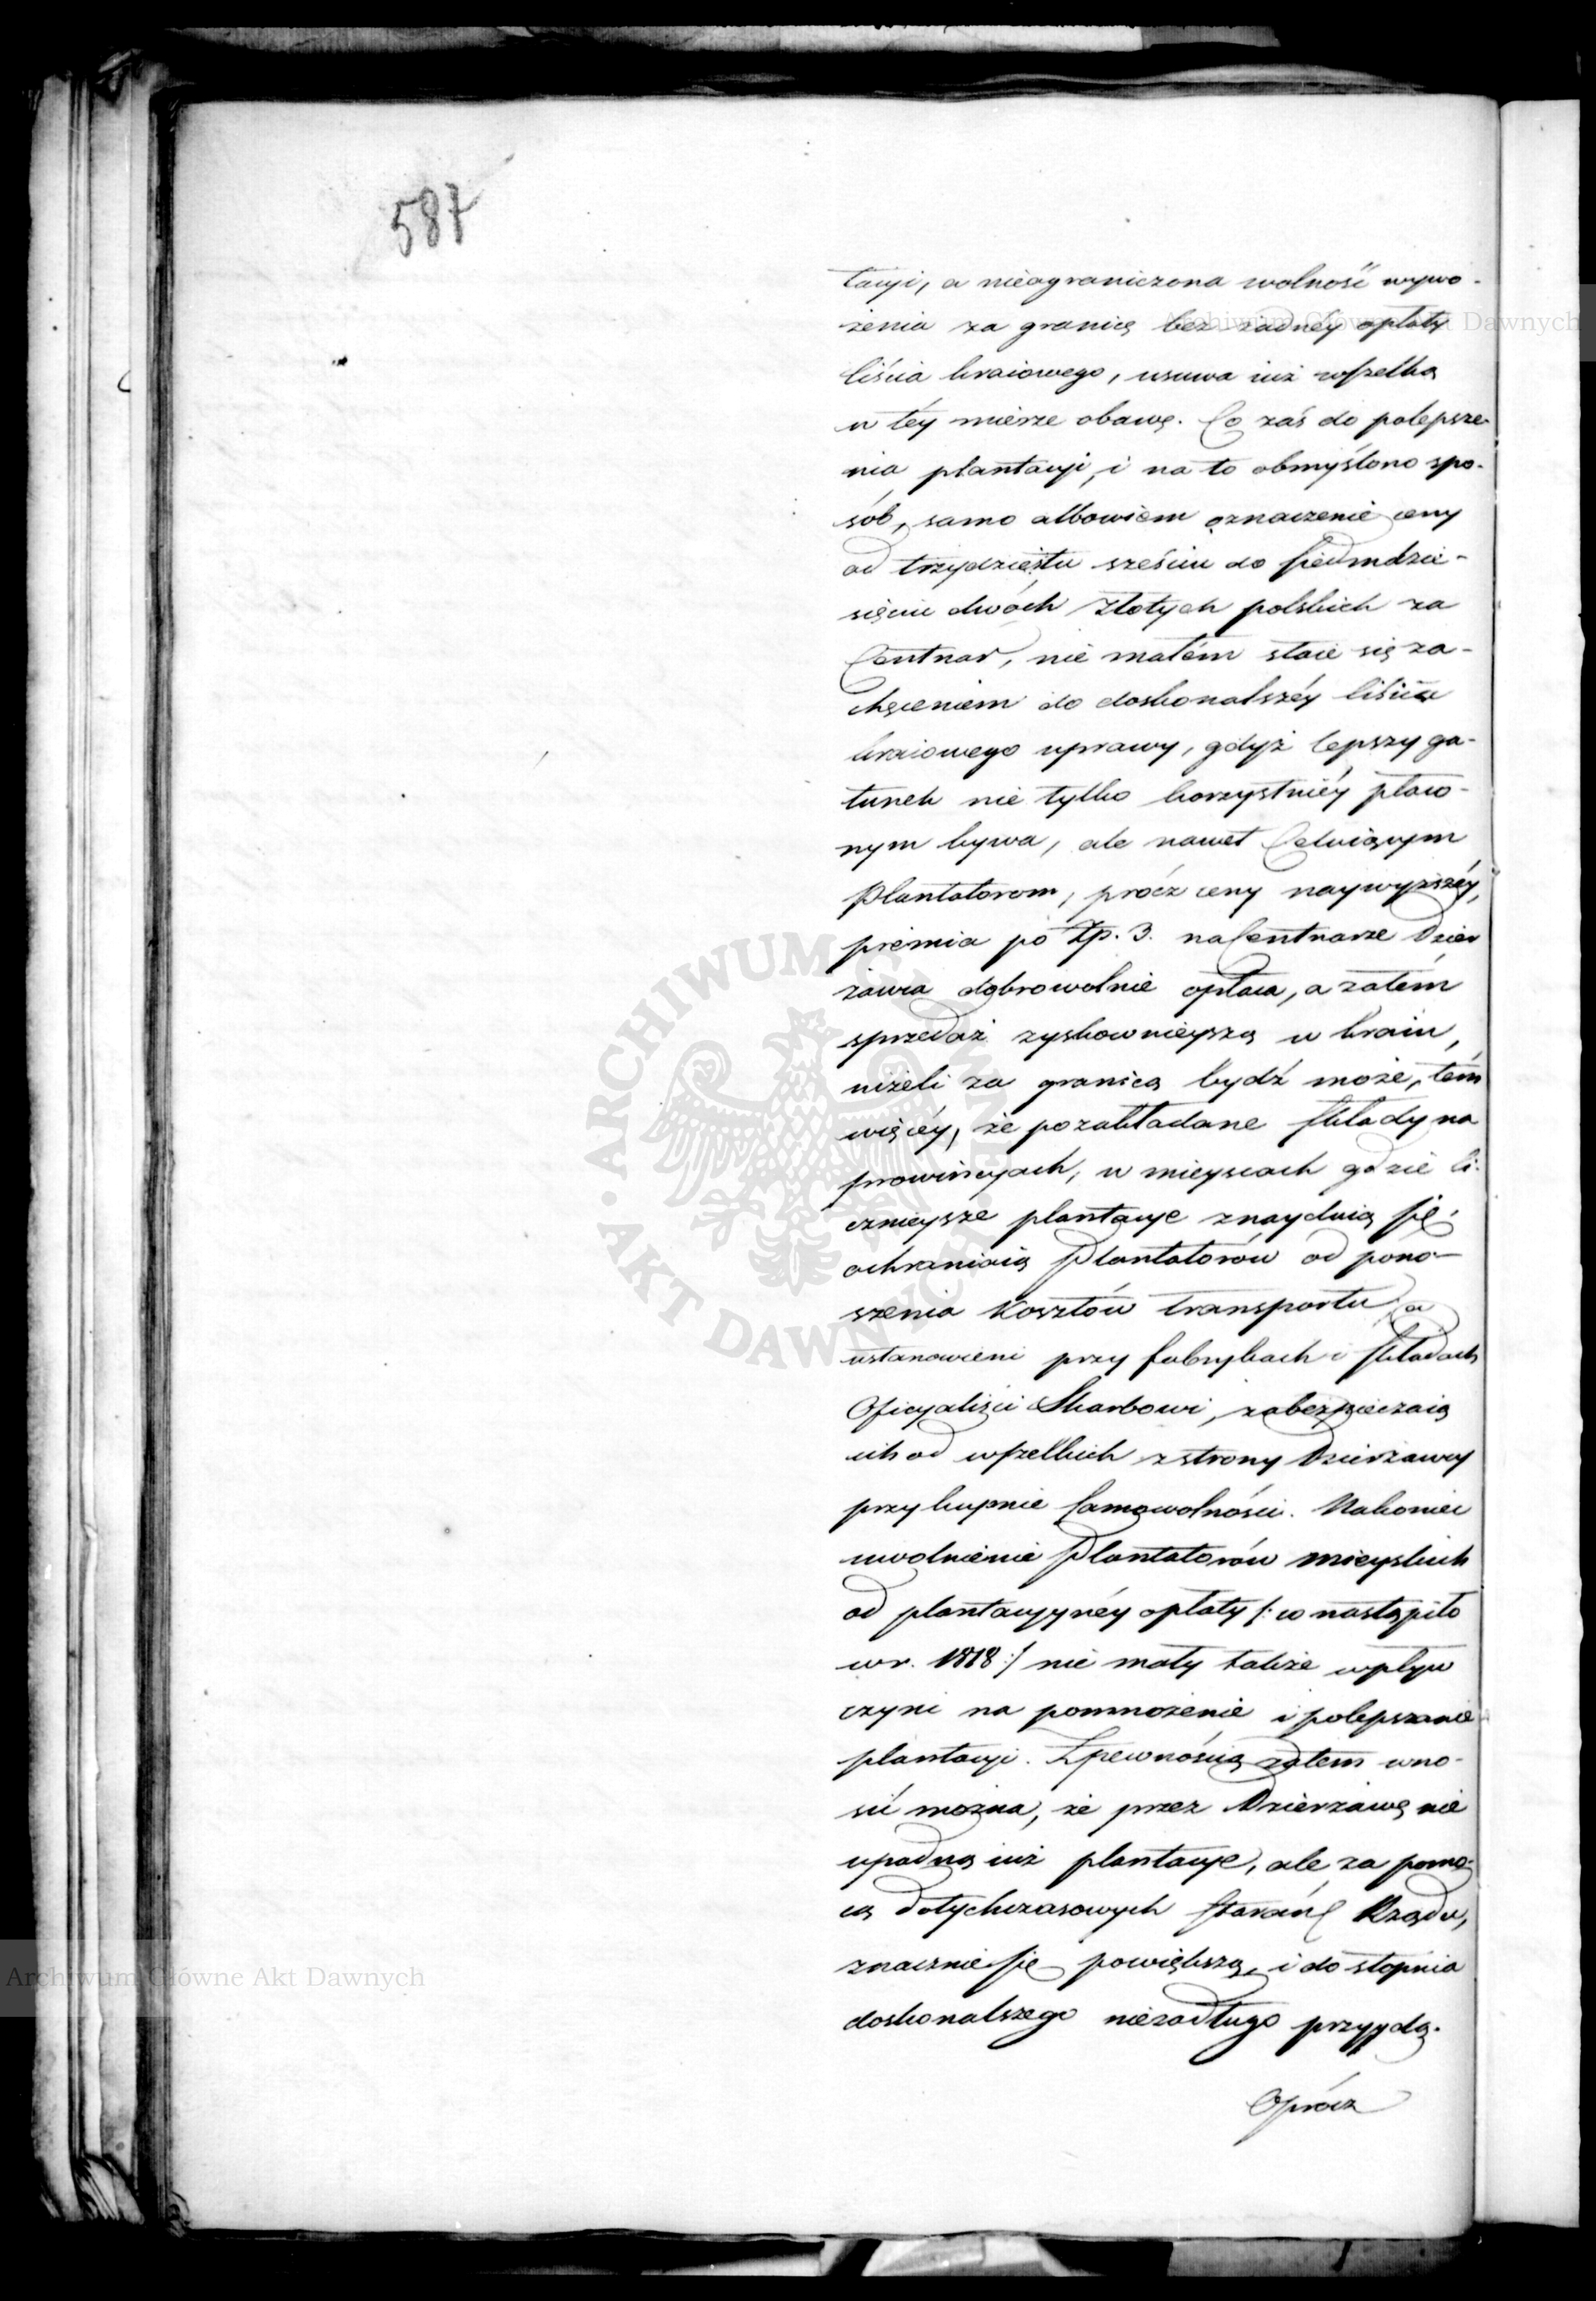 587
tacyi, a nieograniczona wolność wywo-
żenia za granicę bez żadnéy opłaty
liścia kraiowego, usuwa iuż wszelką
w téy mierze obawę. Co zaś do polepsze-
nia plantacyi, i na to obmyślono spo-
sób, samo albowiem oznaczenie ceny
od trzydziestu sześciu do siedmdzie-
sięciu dwóch Złotych polskich za
Centnar, nie małém staie się za-
chęceniem do doskonalszéy liścia
kraiowego uprawy, gdyż lepszy ga-
tunek nie tylko korzystniéy płaco-
nym bywa, ale nawet Celuiącym
Plantatorom, prócz ceny naywyższéy,
premia po Zp. 3. na Centnarze Dzier
żawca dobrowolnie opłaca, a zatém
sprzedaż zyskownieyszą w kraiu,
niżeli za granicą bydź może, tém
więcéy, że pozakładane składy na
prowincyach, w mieyscach gdzie li-
cznieysze plantacye znayduią się,
ochraniaią Plantatorów od pono-
szenia Kosztów transportu, a
ustanowieni przy fabrykach i składach
Oficyaliści Skarbowi, zabezpieczaią
ich od wszelkich z strony Dzierżawcy
przy kupnie samowolności. Nakoniec
uwolnienie Plantatorów mieyskich
od plantacyynéy opłaty /: co nastąpiło
w r. 1818 :/ nie mały także wpływ
czyni na pomnożenie i polepszanie
plantacyi. Z pewnością zatem wno-
sić można, że przez Dzierżawę nie
upadną iuż plantacye, ale za pomo-
cą dotychczasowych starań Rządu,
znacznie się powiększą, i do stopnia
doskonalszego niezadługo przyydą.
Oprócz
Archiwum Główne Akt Dawnych
Archiwum Główne Akt Dawnych
ARCHIWUM GŁÓWNE AKT DAWNYCH